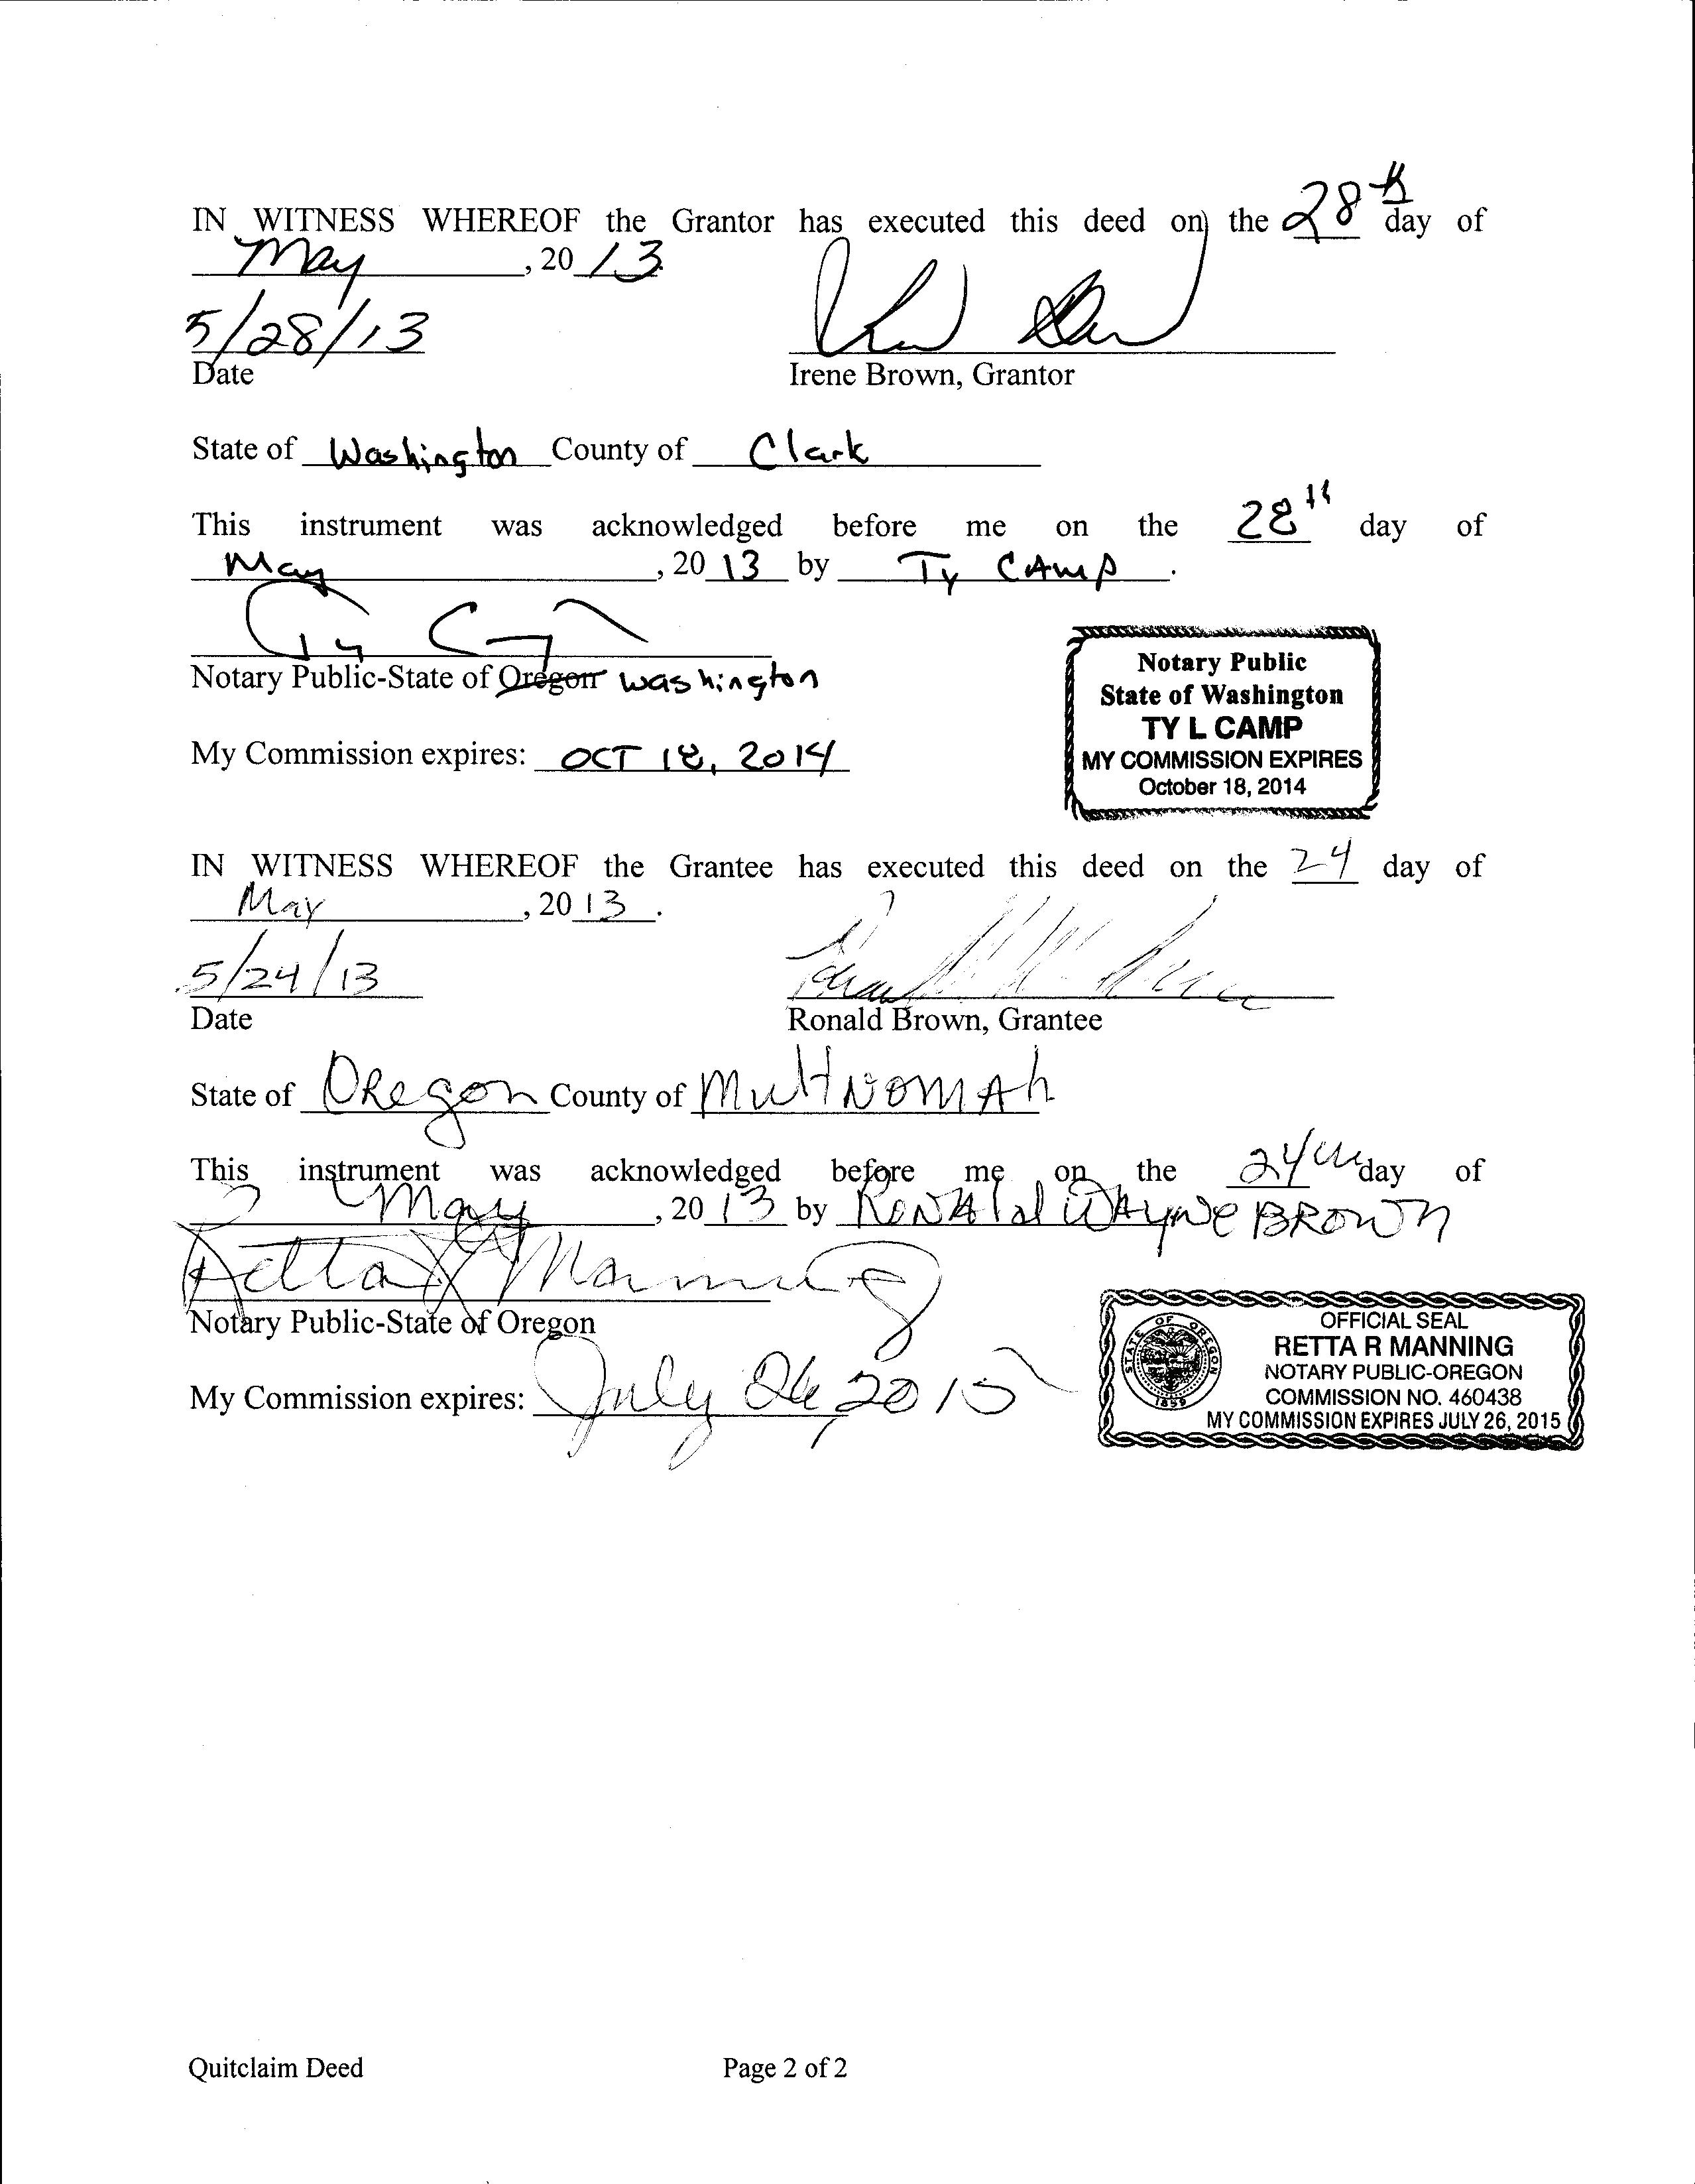 IN WITNESS WHEREOF the Grantor has executed this deed on the 28th day of
May, 2013
5/28/13
Date
Irene Brown, Grantor
State of Washington County of Clark
This instrument was acknowledged before me on the 28th day of
May, 2013 by Ty CAmp.
Ty C
Notary Public-State of Oregon Washington
My Commission expires: OCT 18, 2014
Notary Public
State of Washington
TY L CAMP
MY COMMISSION EXPIRES
October 18, 2014
IN WITNESS WHEREOF the Grantee has executed this deed on the 24 day of
May, 2013.
5/24/13
Date
Ronald Brown, Grantee
State of Oregon County of MultNomAh
This instrument was acknowledged before me on the 24th day of
May, 2013 by RONAld WAyNe BROWN
Retta R Manning
Notary Public-State of Oregon
My Commission expires: July 26, 2015
STATE OF OREGON
1859
OFFICIAL SEAL
RETTA R MANNING
NOTARY PUBLIC-OREGON
COMMISSION NO. 460438
MY COMMISSION EXPIRES JULY 26, 2015
Quitclaim Deed Page 2 of 2